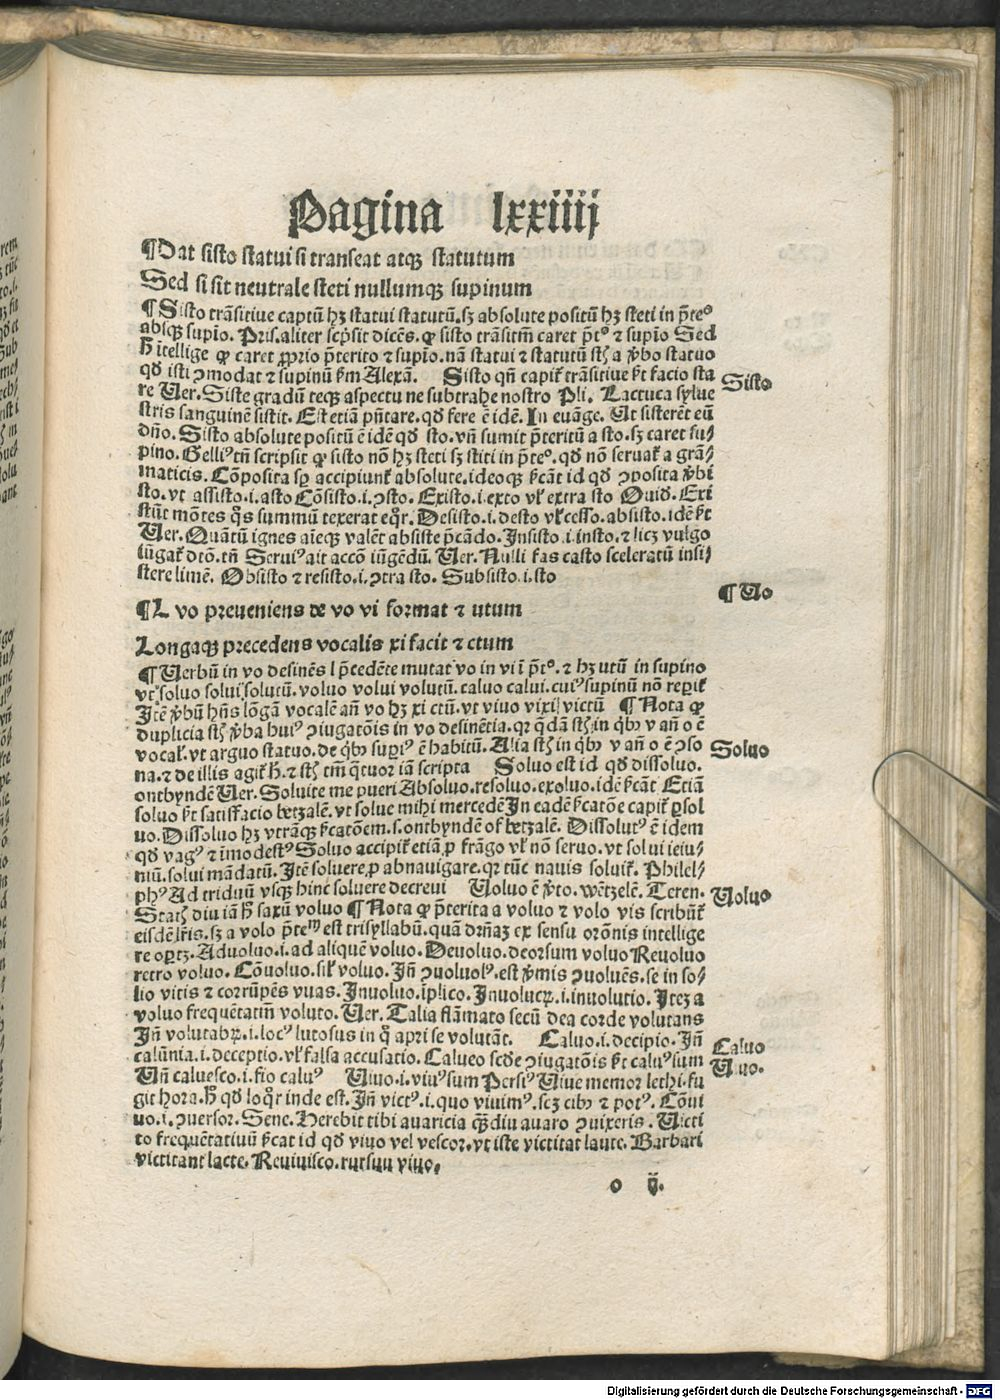 Pagina lxxiiij
¶Dat sisto statui si transeat atqꝫ statutum
Sed si sit neutrale steti nullumqꝫ supinum
¶Sisto trāsitiue captū hꝫ statui statutū. sꝫ absolute positū hꝫ steti in p̄teᵒ
absqꝫ supīo. Pris. aliter scp̄sit dicēs. ꝙ sisto trāsitiū caret p̄tᵒ ⁊ supīo Sed
h̄ ītellige ꝙ caret ꝓprio p̄terito ⁊ supīo. nā statui ⁊ statutū st̄ a v̄bo statuo
qd̄ isti ꝯmodat ⁊ supinū ẜm Alexā. Sisto qn̄ capit᷑ trāsitiue ẜt facio sta
re Uer. Siste gradū teqꝫ aspectu ne subtrahe nostro Pli. Lactuca sylue
stris sanguinē sistit. Est etiā pn̄tare. qd̄ fere ē idē. In euāge. Ut sisterēt eū
dn̄o. Sisto absolute positū ē idē qd̄ sto. vn̄ sumit p̄teritū a sto. sꝫ caret su⸗
pino. Gelliꝰ tn̄ scripsit ꝙ sisto nō hꝫ steti sꝫ stiti in p̄teᵒ. qd̄ nō seruat᷑ a grā⸗
maticis. Cōposita sꝑ accipiunt᷑ absolute. ideoqꝫ ẜcāt id qd̄ ꝯposita v̄bi
sto. vt assisto. i. asto Cōsisto. i. ꝯsto. Existo. i. exto vl̓ extra sto Ouid. Exi
stūt mōtes q̄s summū texerat eqr̄. Desisto. i. desto vl̓ cesso. absisto. idē ẜt
Uer. Quātū ignes aīeqꝫ valēt absiste p̄cādo. Insisto. i. insto. ⁊ licꝫ vulgo
iūgat᷑ dtō. tn̄ Seruiꝰ ait accō iūgēdū. Uer. Nulli fas casto sceleratū insi⸗
stere limē. Obsisto ⁊ resisto. i. ꝯtra sto. Subsisto. i. sto
Sisto
¶Uo
¶L vo preueniens de vo vi format ⁊ utum
Longaqꝫ precedens vocalis xi facit ⁊ ctum
¶Uerbū in vo desinēs l p̄cedēte mutat vo in vi ī p̄tᵒ. ⁊ hꝫ utū in supino
vt soluo solui solutū. voluo volui volutū. caluo calui. cuiꝰ supinū nō reꝑit᷑
Itē v̄bū hn̄s lōgā vocalē an̄ vo hꝫ xi ctū. vt viuo vixi victū ¶Nota ꝙ
duplicia st̄ v̄ba huiꝰ ꝯiugatōis in vo desinētia. qꝛ q̄dā st̄ in qbꝰ v an̄ o ē
vocal̓. vt arguo statuo. de qbꝰ supiꝰ ē habitū. Alia st̄ in qbꝰ v an̄ o ē ꝯso
na. ⁊ de illis agit᷑ h̄. ⁊ st̄ tm̄ q̄tuor iā scripta Soluo est id qd̄ dissoluo.
ontbyndē Uer. Soluite me pueri Absoluo. resoluo. exoluo. idē ẜcāt Etiā
soluo ẜt satisfacio betzalē. vt solue mihi mercedē In eadē ẜcatōe capit᷑ ꝑsol
uo. Dissoluo hꝫ vtrāqꝫ ẜcatōem. s. ontbyndē of betzalē. Dissolutꝰ ē idem
qd̄ vagꝰ ⁊ īmodestꝰ Soluo accipit᷑ etiā ꝓ frāgo vl̓ nō seruo. vt solui ieiu⸗
niū. solui mādatū. Itē soluere ꝓ abnauigare. qꝛ tūc nauis soluit᷑. Philel⸗
phꝰ Ad triduū vsqꝫ hinc soluere decreui Uoluo ē v̄to. wētzelē. Teren.
Soluo
Uoluo
 diu iā h̄ saxū voluo ¶Nota ꝙ p̄terita a voluo ⁊ volo vis scribūt᷑
eisdē lr̄is. sꝫ a volo p̄teᵐ est trisyllabū. quā drn̄az ex sensu orōnis intellige
re oꝑtꝫ. Aduoluo. i. ad aliquē voluo. Deuoluo. deorsum voluo Reuoluo
retro voluo. Cōuoluo. sil̓ voluo. In̄ ꝯuoluolꝰ. est v̄mis ꝯuoluēs. se in fo⸗
lio vitis ⁊ corrūpēs vuas. Inuoluo. īplico. Inuolucꝝ. i. inuolutio. Itez a
voluo frequētatiū voluto. Uer. Talia flāmato secū dea corde volutans
In̄ volutabꝝ. i. locꝰ lutosus in q̄ apri se volutāt. Caluo. i. decipio. In̄
calūnia. i. deceptio. vl̓ falsa accusatio. Calueo scd̄e ꝯiugatōis ẜt caluꝰ sum
Un̄ caluesco. i. fio caluꝰ Uiuo. i. viuꝰ sum Persiꝰ Uiue memor lethi. fu
git hora. h̄ qd̄ loqr̄ inde est. In̄ victꝰ. i. quo viuimꝰ. scꝫ cibꝰ ⁊ potꝰ. Cōui
uo. i. ꝯuersor. Sene. Herebit tibi auaricia q̄ꝫdiu auaro ꝯuixeris. Uicti
to frequētatiuū ẜcat id qd̄ viuo vel vescor. vt iste victitat laute. Barbari
victitant lacte. Reuiuisco. rursuu viuo.
Caluo
Uiuo.
o ij.
Digitalisierung gefördert durch die Deutsche Forschungsgemeinschaft - DFG